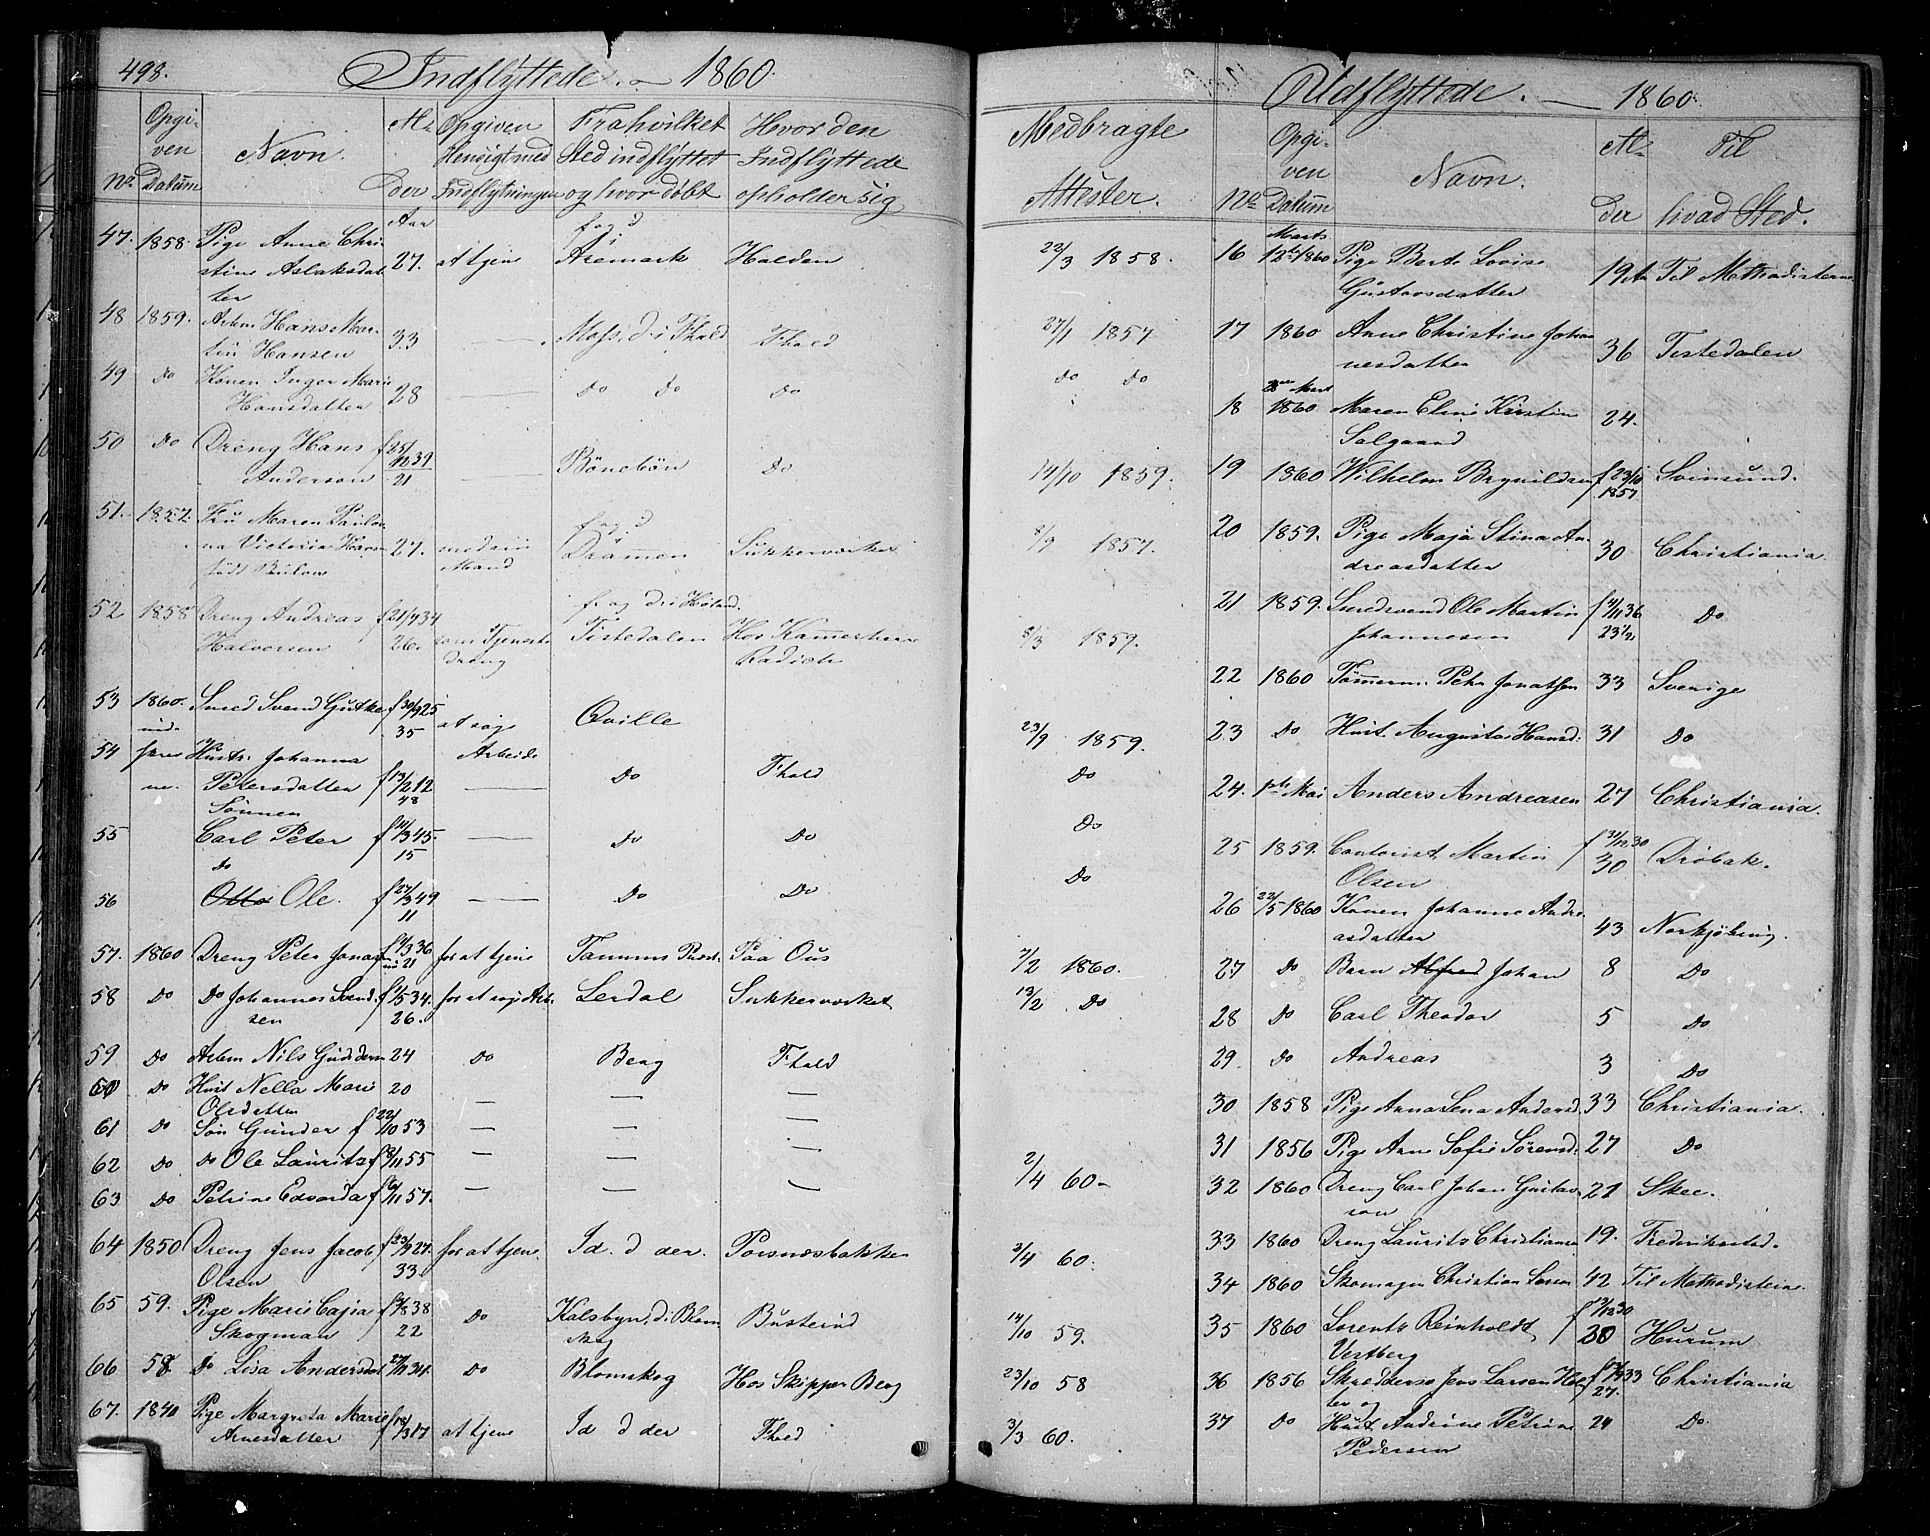 498. Indflyttede. – 1860.
No Opgiven Datum Navn. Alder Opgiven Hensigt med Indflytningen Fra hvilket Sted indflyttet og hvor døbt Hvor den Indflyttede opholder sig
Aar
47. 1858. Pige Anne Christine Aslaksdatter 27. at tjene fra og d i Aremark Halden
48 1859. Arbm Hans Martin Hansen 33 — Moss, d. i Fhald Fhald
49 Do Konen Inger Marie Hansdatter 28 — Do Do Do
50 Do Dreng Hans Anderson f 25/12 39 21 — Do
51. 1857. Fru Maren Paulowna Victoria Hansen født Bülow 27. med sin Mand fra og d Drammen Sukkerværket
52 1858 Dreng Andreas Halvorsen f 21/4 34 26. som Tjenestedreng fr og d i Høland. Tistedalen Hos Kammerherr Radich
53 1860. Smed Svend Gutke f 30/9 25 35 at søge Arbeide Qville
54 Hustr. Johanna Petersdatter f 13/2 12 48 — Do Fhald
55 Sønnen Carl Peter f 11/3 45. 15 — Do Do
56 do Otto Ole. f 27/3 49 11 — Do Do
57. 1860 Dreng Peter Jonas f 4/3 36 21 for at tjene Tanums Præst. Paa Ous
58 Do Do Johannes Svendsen f 1/5 34. 26. for at søge Arb. Lerdal Sukkerværket
59. Do Arbm Nils Gundersen 24 Do Berg Fhald
60 Do Hust Nella Marie Olsdatter 20 — — —
61 Do Søn Gunder f 22/10 53 — — —
62 Do Do Ole Laurits f 8/11 55 — — —
63 Do Petrine Edvarda f 6/11 57. — —
64 1850 Dreng Jens Jacob Olsen f 23/9 27. 33. for at tjene. Id. d der. Porsnæsbakken
65 59. Pige Marie Cajsa Skogman f 2/8 38 22 Do Kalsbyn, d. i Blomskog Busterud
66 58. Do Lisa Andersdat 27/11 34. Do Blomskog Hos Skipper Berg
67. 1840 Pige Margreta Marie Arnesdatter f 18/3 17 at tjene Id d der Fhald
Medbragte Attester.
22/3 1858.
27/1 1857
Do Do
14/10 1859.
8/9 1857.
8/3 1859.
23/9 1859.
Do
Do
Do
7/2 1860.
13/2 Do
2/4 60–
2/4 60.
14/10 59.
23/10 58
3/3 60.
Udflyttede. — 1860.
No Opgiven Datum Navn. Alder Til hvad Sted.
16 Marts 12te 1860 Pige Berte Lovise Gustavsdatter 19 A Til Methodisterne
17 1860 Anne Christine Johannesdatter 36 Tistedalen
18 Mart 1860 Maren Eline Kirstine Solgaard 24.
19 1860 Wilhelm Brynildsen f 23/10 1857 Svinsund.
20 1859. Pige Maja Stina Andreasdatter 30 Christiania.
21 1859. Smedsvend Ole Martin Johannesen f 4/11 36 23 1/2 Do
22 1860 Tømmerm. Peter Jonassen 33 Sverige
23 Do Hust. Augusta Hansd. 31 Do
24. 1ste Mai Anders Andreasen 27 Christiania.
25 1859. Contorist Martin Olsen f 31/12 30 30 Drøbak.
26 22/5 1860 Konen Johanne Andreasdatter 43 Norkjøbing.
27 Do Barn Alfred Johan 8 Do
28 Do Carl Theodor 5 Do
29. Do Andreas 3 Do
30 1858 Pige Anna Lena Andersd. 33 Christiania.
31 1856 Pige Anne Sofie Sørensd. 27 Do
32 1860 Dreng Carl Johan Gustavson 21 Skee.
33 1860 Dreng Laurits Christiansen 19. Frederikstad.
34 1860 Skomager Christian Larsen 42 Til Methodisterne
35 1860 Lorents Reinholdt Vestberg f 2/12 30 30 Hurum
36 1856 Skredders. Jens Larsen Holter og 33 27. Christiania
37 Do Hust. Andrine Petrine Pedersen 24 Do.